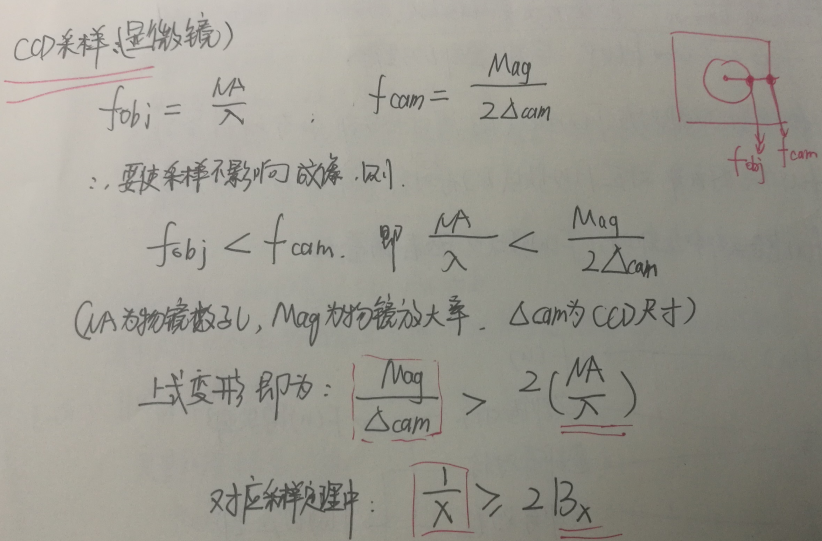 CCD采样(显微镜)
f_obj = NA/λ ; f_cam = Mag/2Δcam
f_obj f_cam
∴ 要使采样不影响成像,则.
f_obj < f_cam. 即 NA/λ < Mag/2Δcam
(NA为物镜数孔, Mag为物镜放大率. Δcam为CCD尺寸)
上式变形即为: Mag/Δcam > 2(NA/λ)
对应采样定理中: 1/X ≥ 2Bx